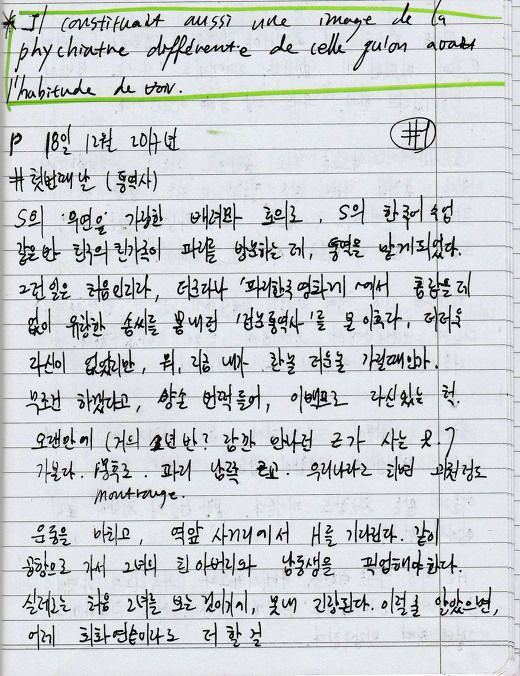 * Il constituait aussi une image de la
phychiatrie différente de celle qu'on avait
l'habitude de voir.
P 18일 12월 2017년 #1
# 첫번째 날 (통역사)
S의 '우연을' 가장한 배려와 호의로, S의 한국어 수업
같은 반 친구의 친가족이 파리를 방문하는데, 통역을 맡게되었다.
그런 일은 처음인지라, 더군다나 '파리한국영화제'에서 흠잡을데
없이 유창한 솜씨를 뽐내던 '전문통역사'를 본 이후라, 더더욱
자신이 없었지만, 뭐, 지금 내가 찬물 더운물 가릴때인가.
무조건 하겠다고, 양손 번쩍들어, 이백프로 자신있는 척.
오랜만에 (거의 2년 반? 잠깐 만나던 그가 사는 곳.)
가본다. 몽후즈. 파리 남쪽 근교. 우리나라로 치면 과천정도
montrouge.
운동을 마치고, 역앞 사거리에서 H를 기다린다. 같이
공항으로 가서 그녀의 친아버지와 남동생을 픽업해야한다.
실제로는 처음 그녀를 보는 것이기에, 못내 긴장된다. 이럴줄 알았으면,
어제 회화연습이라도 더 할 걸